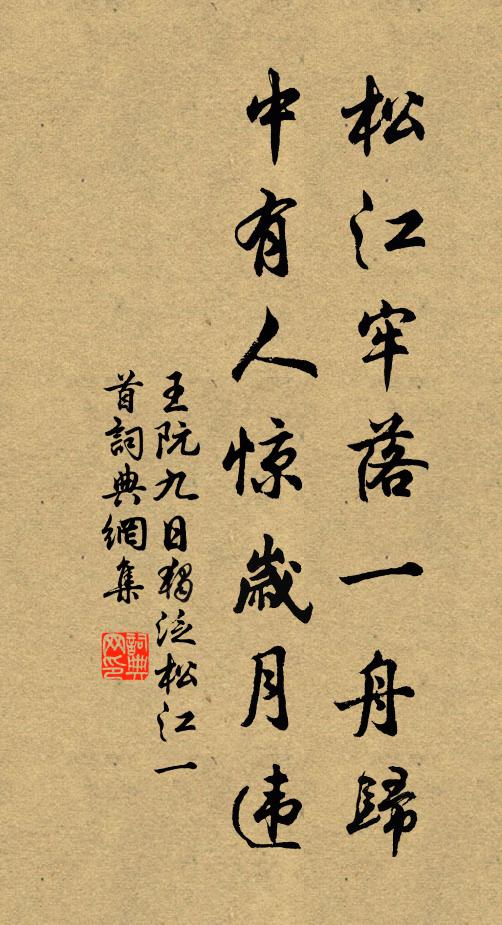 松江牢落一舟歸
中有人惊歲月违
王阮九日獨泛松江一
首詞典網集
詞典网印